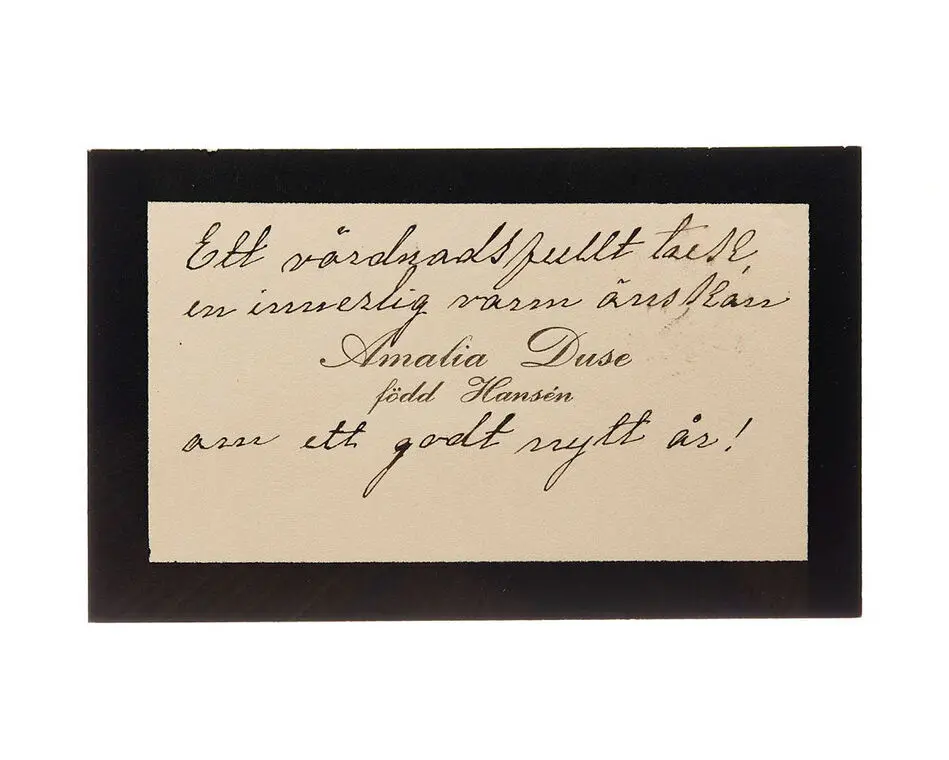 Ett vördnadsfullt tack
en innerlig varm önskan
Amalia Duse
född Hansén
om ett godt nytt år!